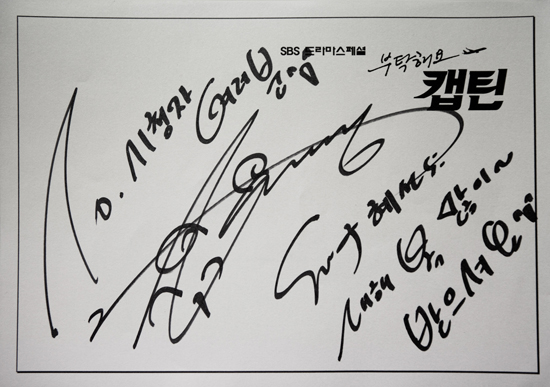 SBS 드라마스페셜
부탁해요
캡틴
To. 시청자 여러분
새해 복 많이~
받으세요